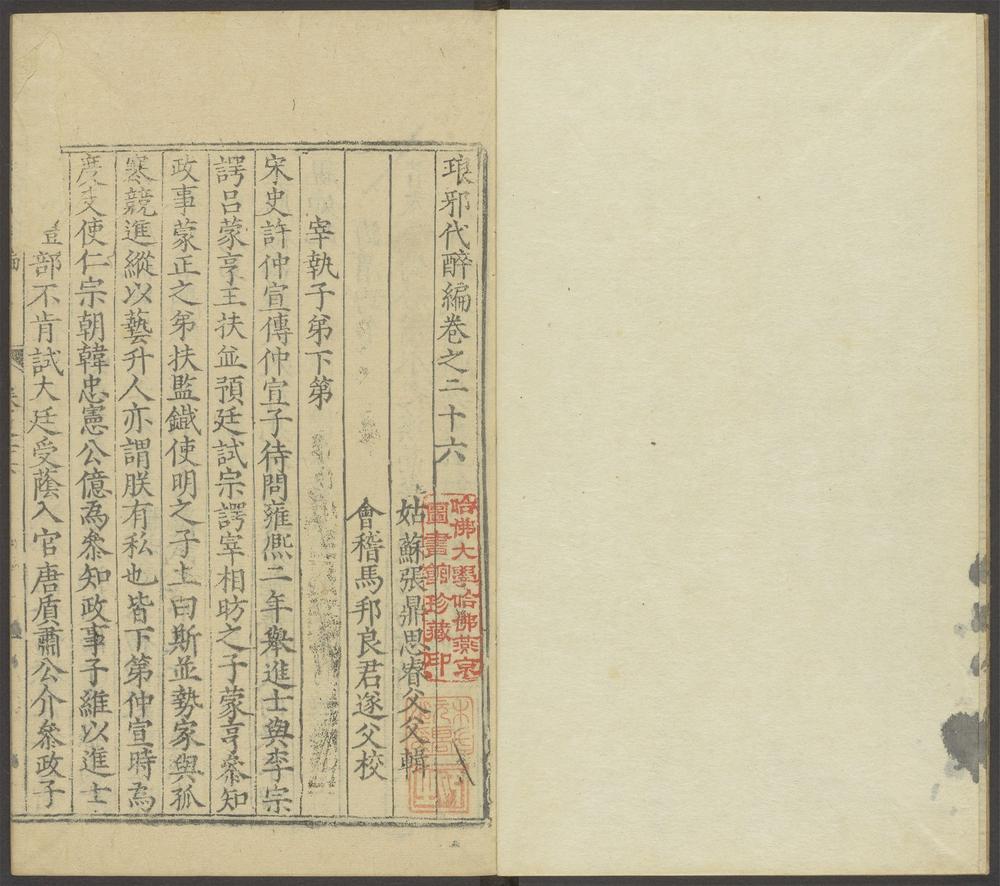 琅邪代醉編卷之二十六
姑蘇張鼎思睿父父輯
會稽馬邦良君遂父校
宰執子弟下第
宋史許仲宣傳仲宣子待問雍熙二年舉進士與李宗
諤呂蒙亨王扶並預廷試宗諤宰相昉之子蒙亨叅知
政事蒙正之弟扶監鐵使明之子上曰斯並勢家與孤
寒競進縱以藝升人亦謂朕有私也皆下第仲宣時為
度支使仁宗朝韓忠憲公億為叅知政事子維以進士
部不肯試大廷受蔭入官唐質肅公介叅政子
哈佛大學哈佛燕京
圖書館珍藏印